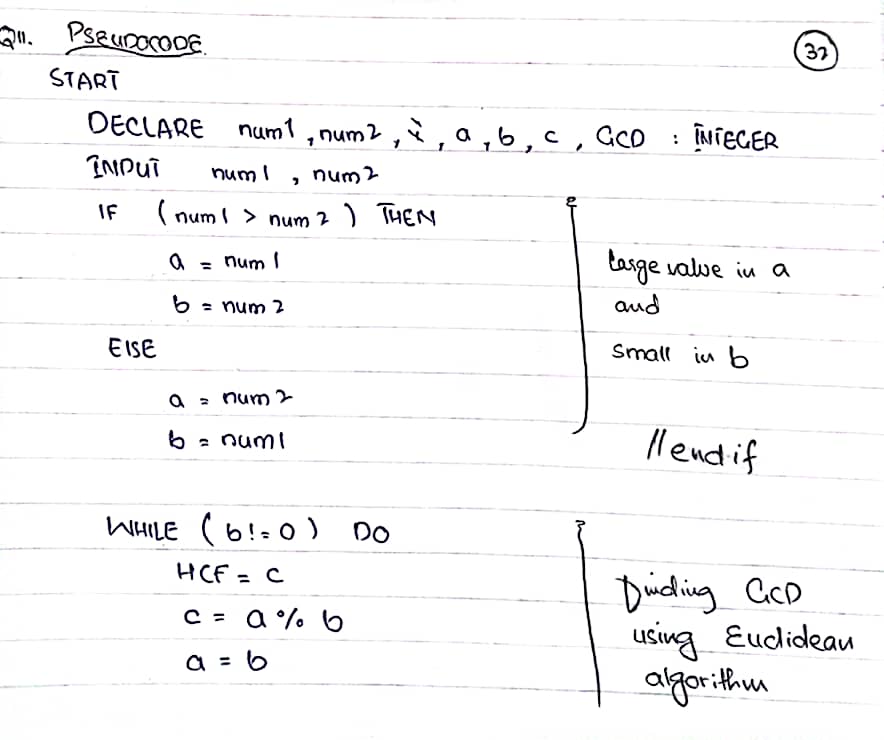 Q11. PSEUDOCODE 37
START
DECLARE num1, num2, i, a, b, c, GCD : INTEGER
INPUT num1, num2
IF (num1 > num2) THEN
a = num1
b = num2
ELSE
a = num2
b = num1
large value in a
and
small in b
//end if
WHILE (b != 0) DO
HCF = c
c = a % b
a = b
GCD
using Euclidean
algorithm